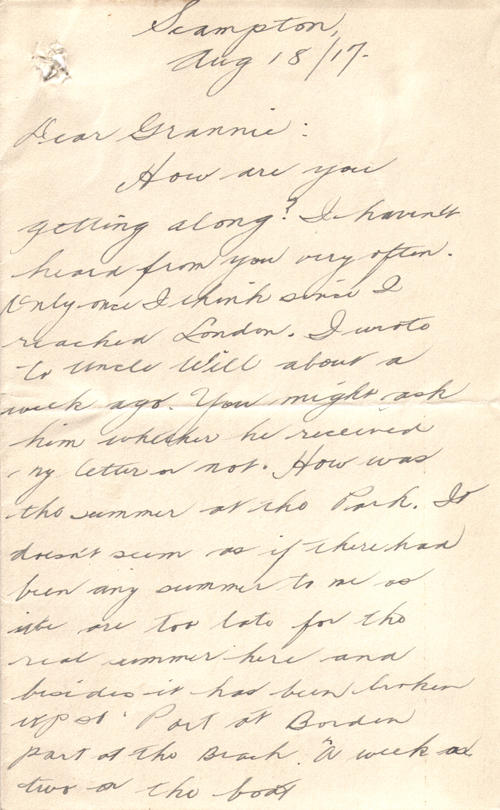 Scampton,
Aug 18/17.
Dear Grannie:
How are you
getting along? I haven't
heard from you very often.
Only once I think since I
reached London. I wrote
to Uncle Will about a
week ago. You might ask
him whether he received
my letter or not. How was
the summer at the Park. It
doesn't seem as if there had
been any summer to me as
we are too late for the
real summer here and
besides it has been broken
up so. Part at Borden
part at the Beach. A week or
two on the boat